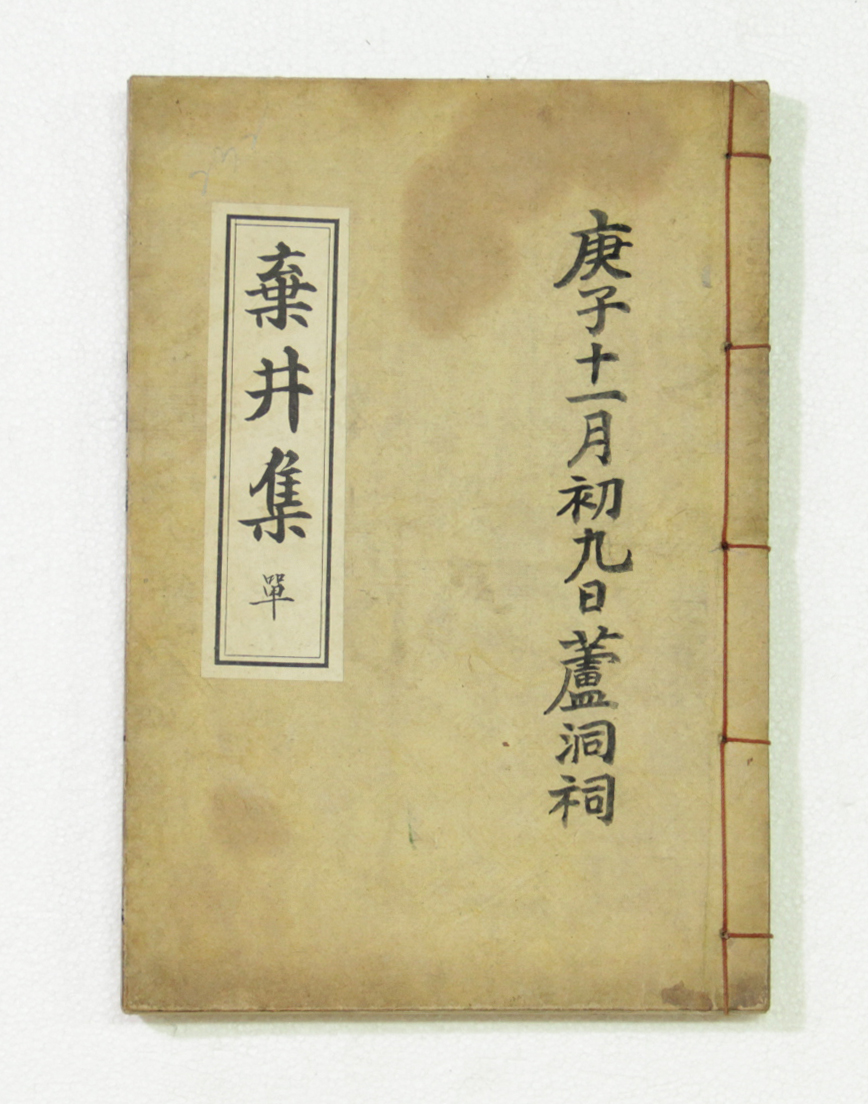 庚子十一月初九日蘆洞祠
棄井集
單